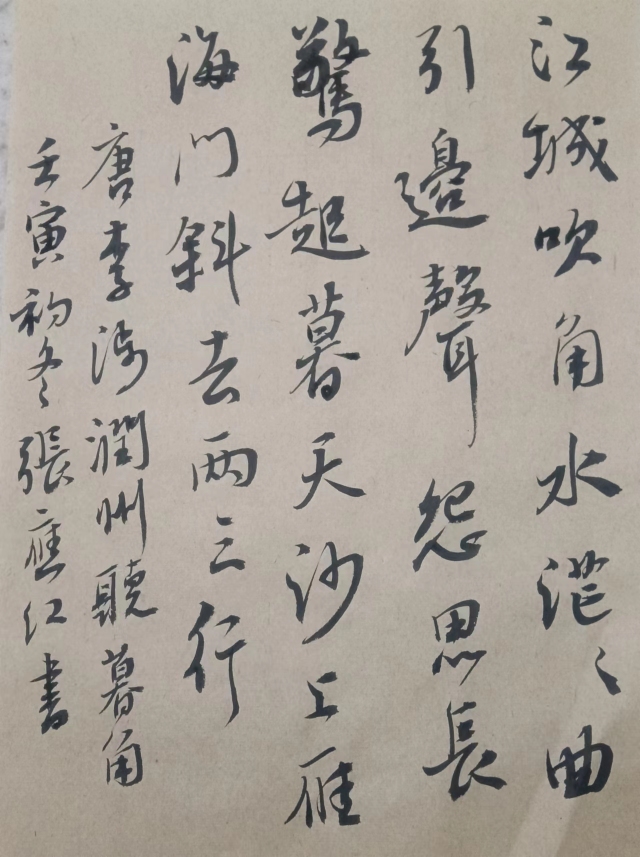 江城吹角水茫〻曲
引邊聲怨思長
驚起暮天沙上雁
海門斜去兩三行
唐李涉潤州聽暮角
壬寅初冬張應红書